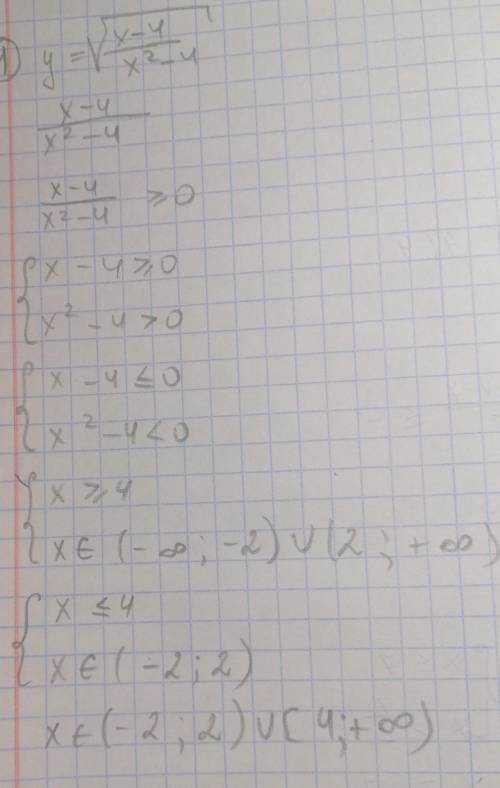 1) y = √((x-4)/(x²-4))
(x-4)/(x²-4)
(x-4)/(x²-4) ⩾ 0
{ x - 4 ⩾ 0
x² - 4 > 0
{ x - 4 ≤ 0
x² - 4 < 0
{ x ⩾ 4
x ∈ (-∞; -2) ∪ (2; +∞)
{ x ≤ 4
x ∈ (-2; 2)
x ∈ (-2; 2) ∪ [4; +∞)